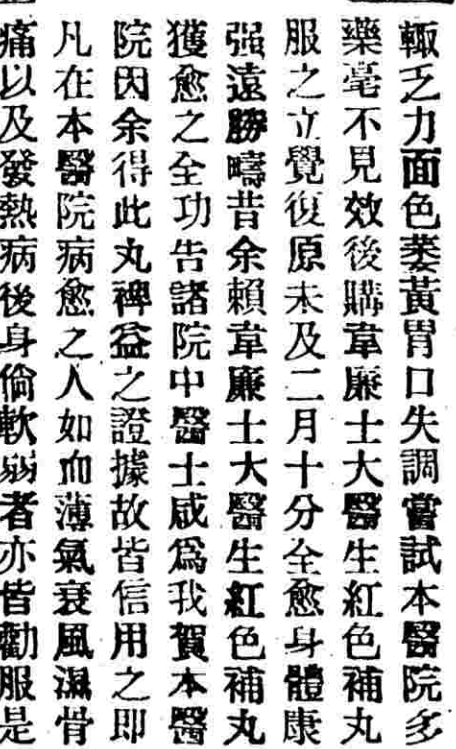 輙乏力面色萎黃胃口失調嘗試本醫院多
藥毫不見效後購韋廉士大醫生紅色補丸
服之立覺復原未及二月十分全愈身體康
强遠勝疇昔余賴韋廉士大醫生紅色補丸
獲愈之全功告諸院中醫士咸爲我賀本醫
院因余得此丸裨益之證據故皆信用之即
凡在本醫院病愈之人如血薄氣衰風濕骨
痛以及發熱病後身倘軟弱者亦皆勸服是